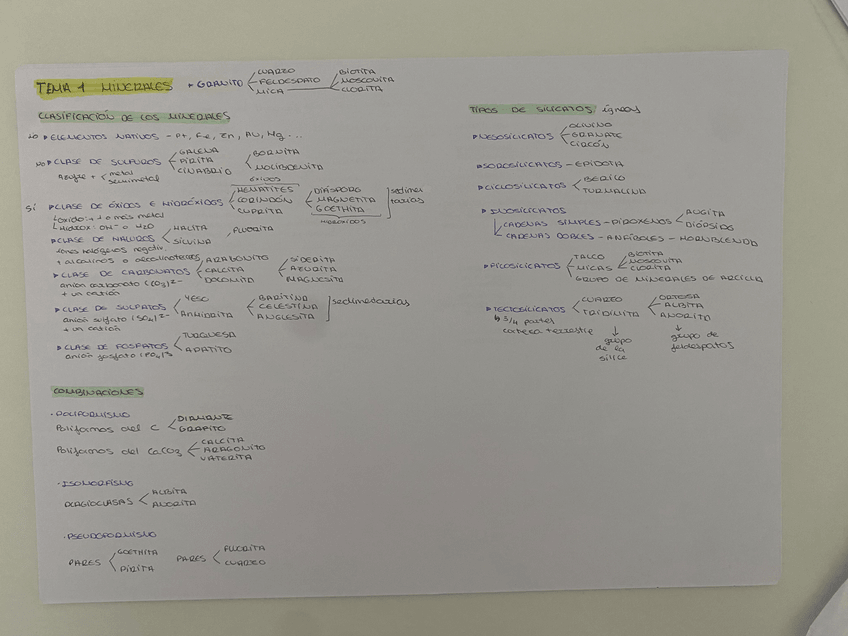 TEMA 1 MINERALES + GRANITO CUARZO FELDESPATO MICA BIOTITA MOSCOVITA CLORITA
CLASIFICACIÓN DE LOS MINERALES
NO ELEMENTOS NATIVOS - Pt, Fe, Zn, Au, Hg ...
NO CLASE DE SULFUROS GALENA PIRITA CINABRIO BORNITA MOLIBDENITA
Azufre + metal semimetal
ÓXIDOS
SÍ CLASE DE ÓXIDOS E HIDRÓXIDOS HEMATITES CORINDÓN CUPRITA DIÁSPORO MAGNETITA GOETHITA sedimentarias
HIDRÓXIDOS
óxido: 1 o más metal
Hidróx: OH- o H2O
CLASE DE HALUROS HALITA SILVINA FLUORITA
iones halógenos negativ.
+ alcalinos o alcalinotérreos
CLASE DE CARBONATOS ARAGONITO CALCITA DOLOMITA SIDERITA AZURITA MAGNESITA
anión carbonato (CO3)2-
+ un catión
CLASE DE SULFATOS YESO ANHIDRITA BARITINA CELESTINA ANGLESITA sedimentarias
anión sulfato (SO4)2-
+ un catión
CLASE DE FOSFATOS TURQUESA APATITO
anión fosfato (PO4)3-
COMBINACIONES
· POLIFORMISMO
Poliformos del C DIAMANTE GRAFITO
Poliformos del CaCO3 CALCITA ARAGONITO VATERITA
· ISOMORFISMO
PLAGIOCLASAS ALBITA ANORITA
· PSEUDOFORMISMO
PARES GOETHITA PIRITA PARES FLUORITA CUARZO
TIPOS DE SILICATOS ígneas
NESOSILICATOS OLIVINO GRANATE CIRCÓN
SOROSILICATOS - EPIDOTA
CICLOSILICATOS BERILO TURMALINA
INOSILICATOS
CADENAS SIMPLES - PIROXENOS AUGITA DIÓPSIDO
CADENAS DOBLES - ANFÍBOLES - HORNBLENDA
FILOSILICATOS TALCO MICAS BIOTITA MOSCOVITA CLORITA
GRUPO DE MINERALES DE ARCILLA
TECTOSILICATOS CUARZO TRIDINITA ORTOSA ALBITA ANORITA
3/4 partes
corteza terrestre
grupo de la sílice
grupo de feldespatos